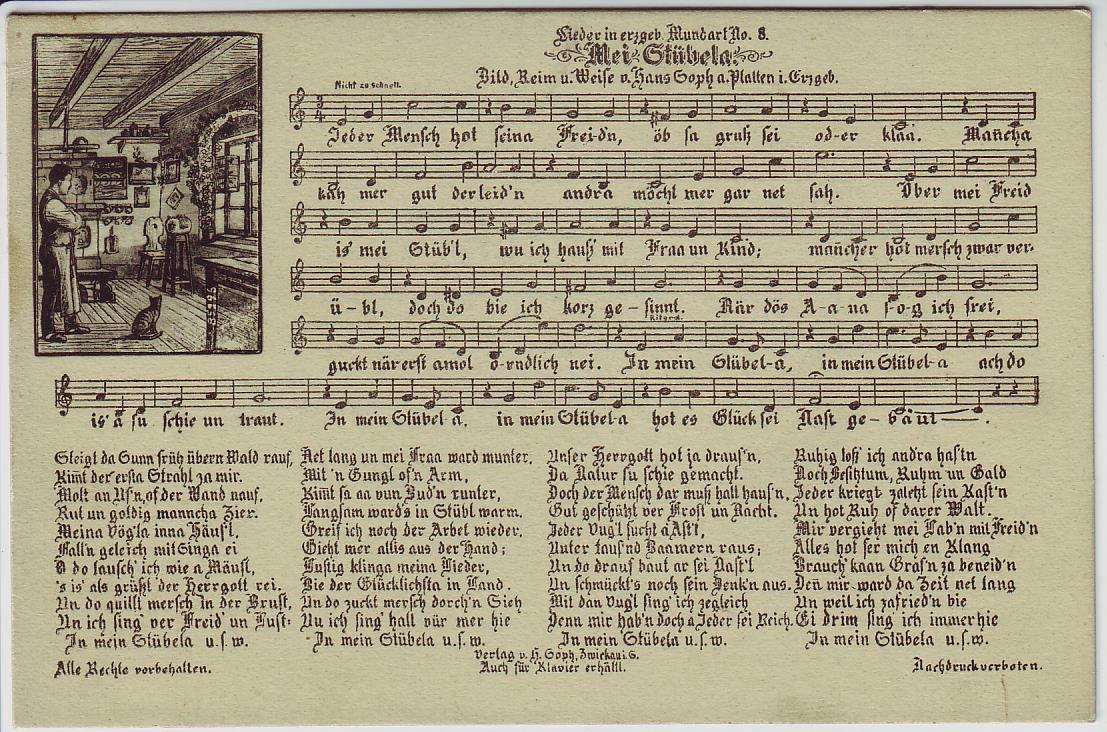 Lieder in erzgeb. Mundart No. 8.
Mei Stübela.
Bild, Reim u. Weise v. Hans Soph a. Platten i. Erzgeb.
Nicht zu schnell.
3/4
Jeder Mensch hot seina Frei-d'n, öb sa gruß sei od-er klaa. Mañcha
kaň mer gut der leid'n andra möcht mer gar net sah. Über mei Freid
is' mei Stüb'l, wu ich hauß' mit Fraa un Kind; mañcher hot mersch zwar ver-
ü-bl, doch do bie ich korz ge-sinnt. När dös A-a-na s-o-g ich frei,
Ritard.
guckt när erst amol o-rndlich nei. In mein Stübel-a, in mein Stübel-a ach do
is' a su schie un traut. In mein Stübel-a, in mein Stübel-a hot es Glück sei Nast ge-baut.
Steigt da Sunn früh übern Wald rauf,
Kimt der ersta Strahl za mir.
Molt an Us'n, of der Wand nauf,
Rut un goldig manncha Zier.
Meina Vög'la inna Häus'l
Fall'n geleich mit Singa ei
O do lausch' ich wie a Mäusl,
's is' als grüßt der Herrgott rei.
Un do quillt mersch in der Brust,
Un ich sing' ver Freid' un Lust:
In mein Stübela u.s.w.
Net lang un mei Fraa ward munter,
Mit 'n Gungl of'n Arm,
Kimt sa aa vun Bud'n runter,
Langsam ward's in Stübl warm.
Greif ich noch der Arbet wieder,
Gieht mer allis aus der Hand;
Lustig klinga meina Lieder,
Bie der Glücklichsta in Land.
Un do zuckt mersch dorch'n Sieh
Un ich sing' hall vür mer hie
In mein Stübela u.s.w.
Unser Herrgott hot ja draus'n,
Da Natur su schie gemacht.
Doch der Mensch dar muß hall haus'n,
Gut geschützt ver Frost un Nacht.
Jeder Vug'l sucht a Ast'l,
Unter taus'nd Baamern raus;
Un do drauf baut ar sei Nast'l
Un schmückt's noch sein Denk'n aus.
Mit dan Vug'l sing' ich zegleich
Denn mir hab'n doch a Jeder sei Reich.
In mein Stübela u.s.w.
Ruhig loß' ich andra hast'n
Noch Besitztum, Ruhm un Gald
Jeder kriegt zaletzt sein Kast'n
Un hot Ruh of darer Walt.
Mir vergieht mei Lab'n mit Freid'n
Alles hot fer mich en Klang
Brauch' kaan Graf'n za beneid'n
Deñ mir ward da Zeit net lang
Un weil ich zafried'n bie
Ei drim sing ich immer hie
In mein Stübela u.s.w.
Verlag v. H. Soph, Zwickau i. S.
Alle Rechte vorbehalten.
Auch für Klavier erhältl.
Nachdruck verboten.